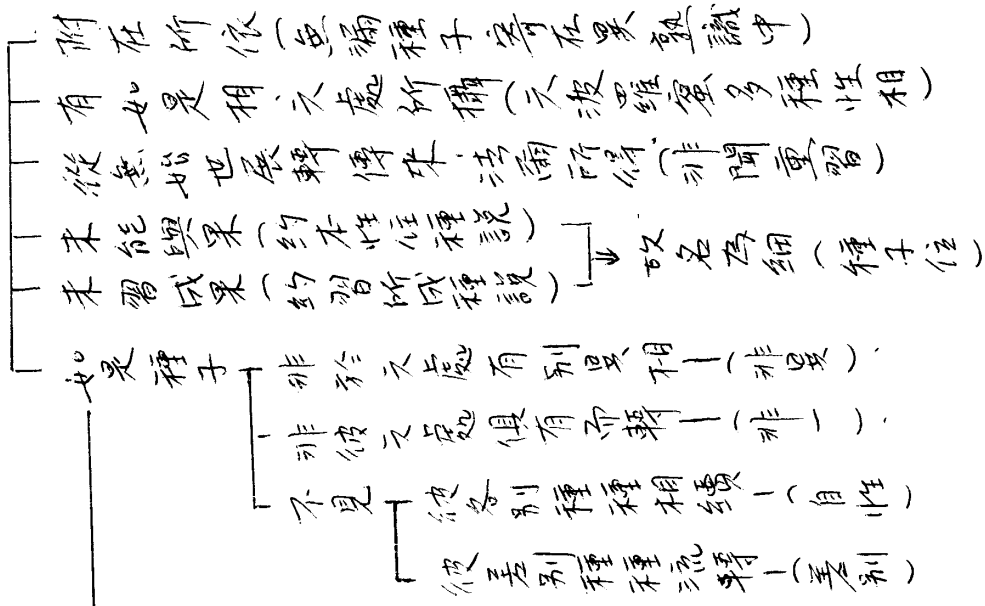 附在所依(無漏種子寄在異熟識中)
有如是相、六處所攝(六波羅蜜多種性相)
從無始世展轉傳來法爾所得(非聞熏習)
未能與果(約本性住種說)
未習成果(約習所成種說)
故名為細(種子位)
如是種子
非於六處有別異相—(非異)
非彼六處俱有而轉—(非一)
不見
彼各別種種相續—(自性)
彼差別種種流轉—(差別)